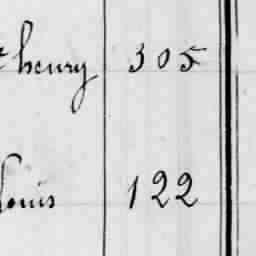 henry 305
Louis 122